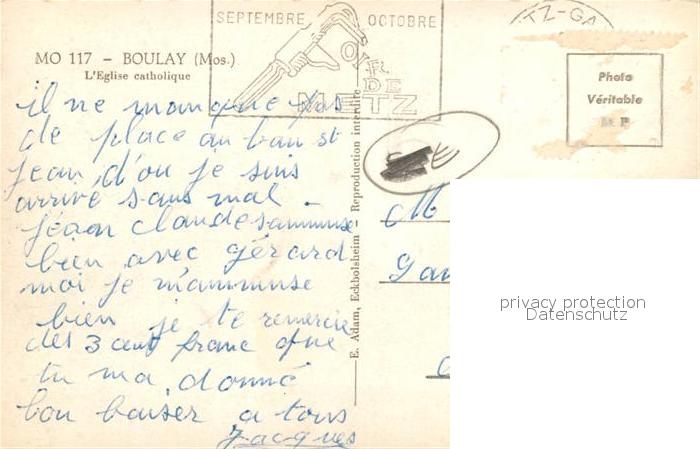 SEPTEMBRE OCTOBRE
FOIRE
DE
METZ
TZ-GA
MO 117 – BOULAY (Mos.)
L'Eglise catholique
Photo
Véritable
il ne manque pas
de place au ban st
jean d'ou je suis
arrivé sans mal -
jean claude sammuse
bien avec gérard
moi je m'ammuse
bien je te remercie
des 3 cent franc que
tu ma donné
bon baiser a tous
Jacques
E. Adam, Eckbolsheim - Reproduction interdite
M
privacy protection
Datenschutz